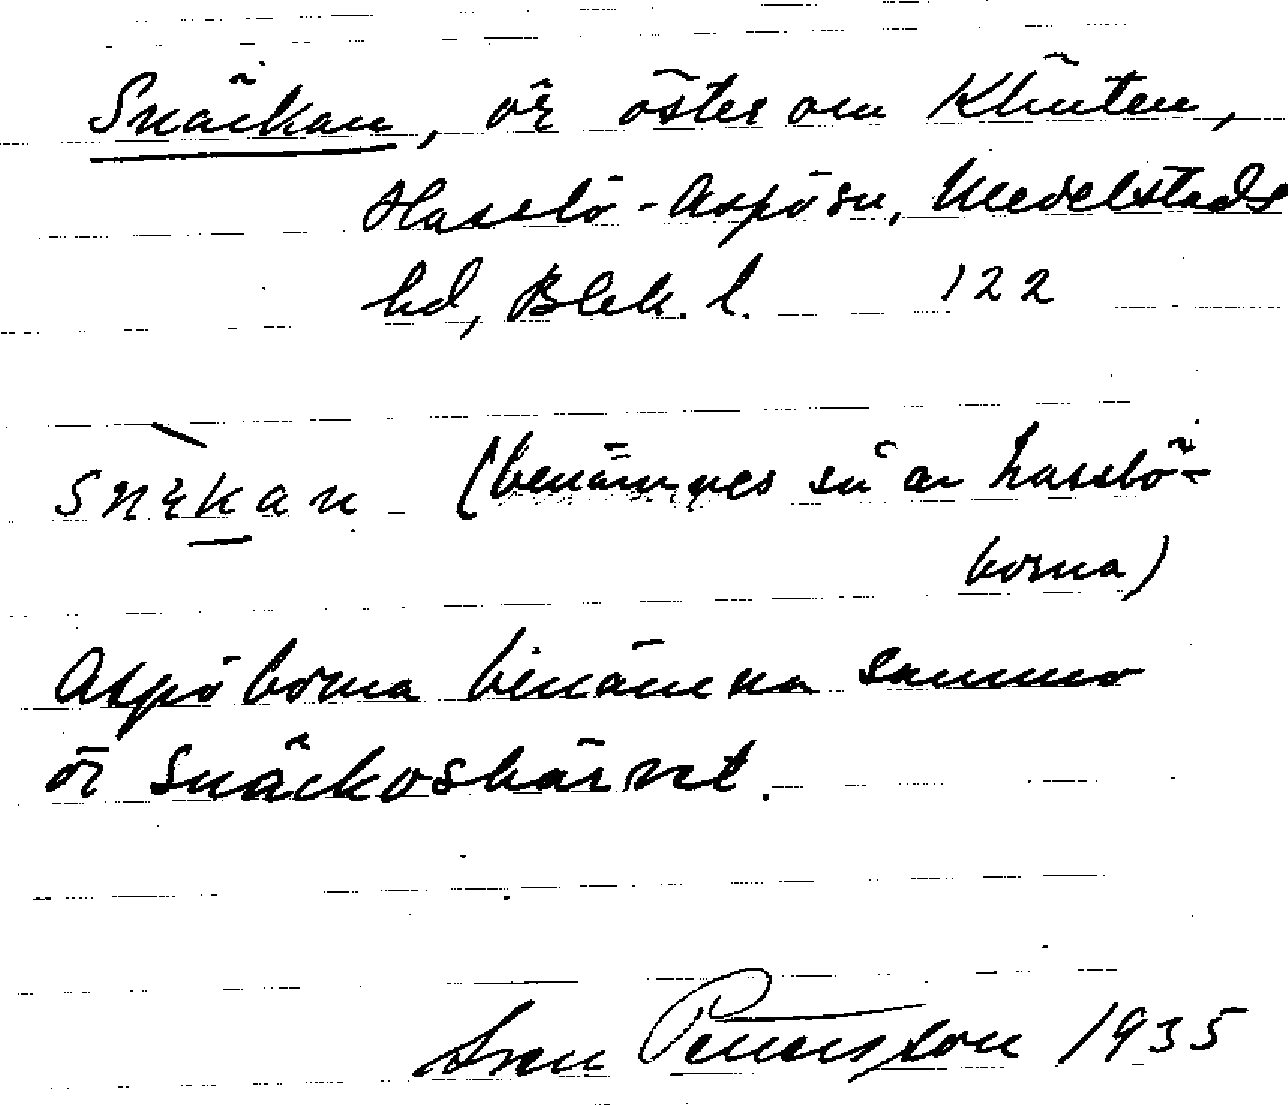 Snäckan, ör öster om Klinten,
Hasslö-Aspö sn, Medelstads
hd, Blek. l. 122
snɛkan (benämnes så av hasslö-
borna)
Aspöborna benämna samma
ör Snäckoskärvet.
Sven Petersson 1935